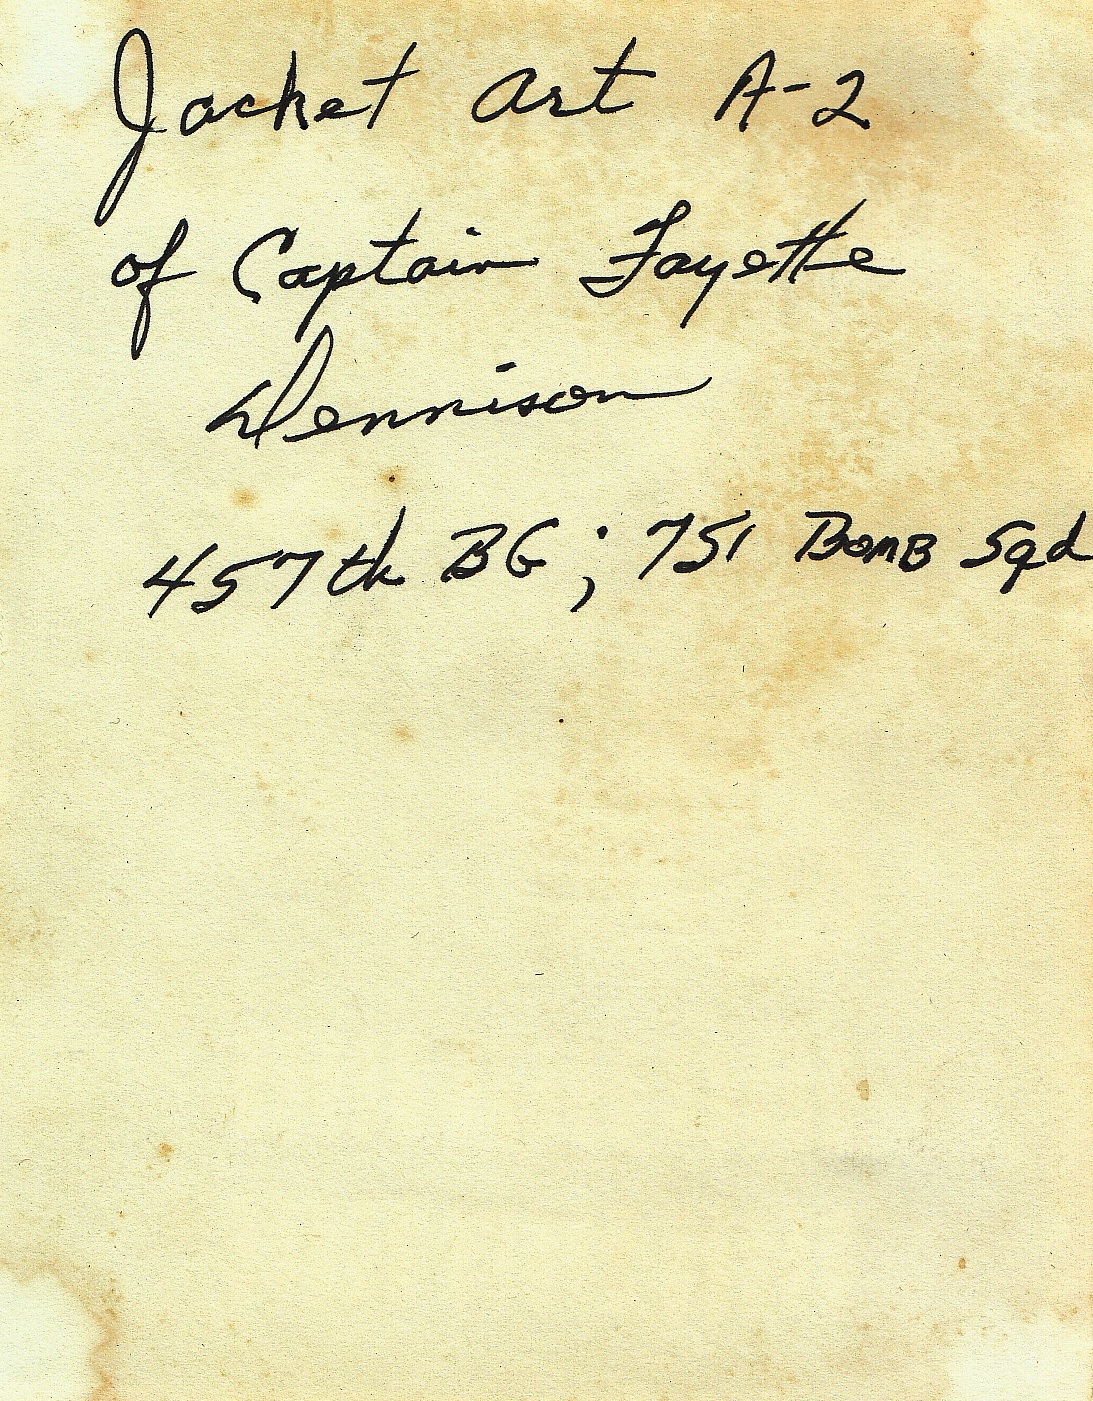 Jacket Art A-2
of Captain Fayette
Dennison
457th BG; 751 Bomb Sqd